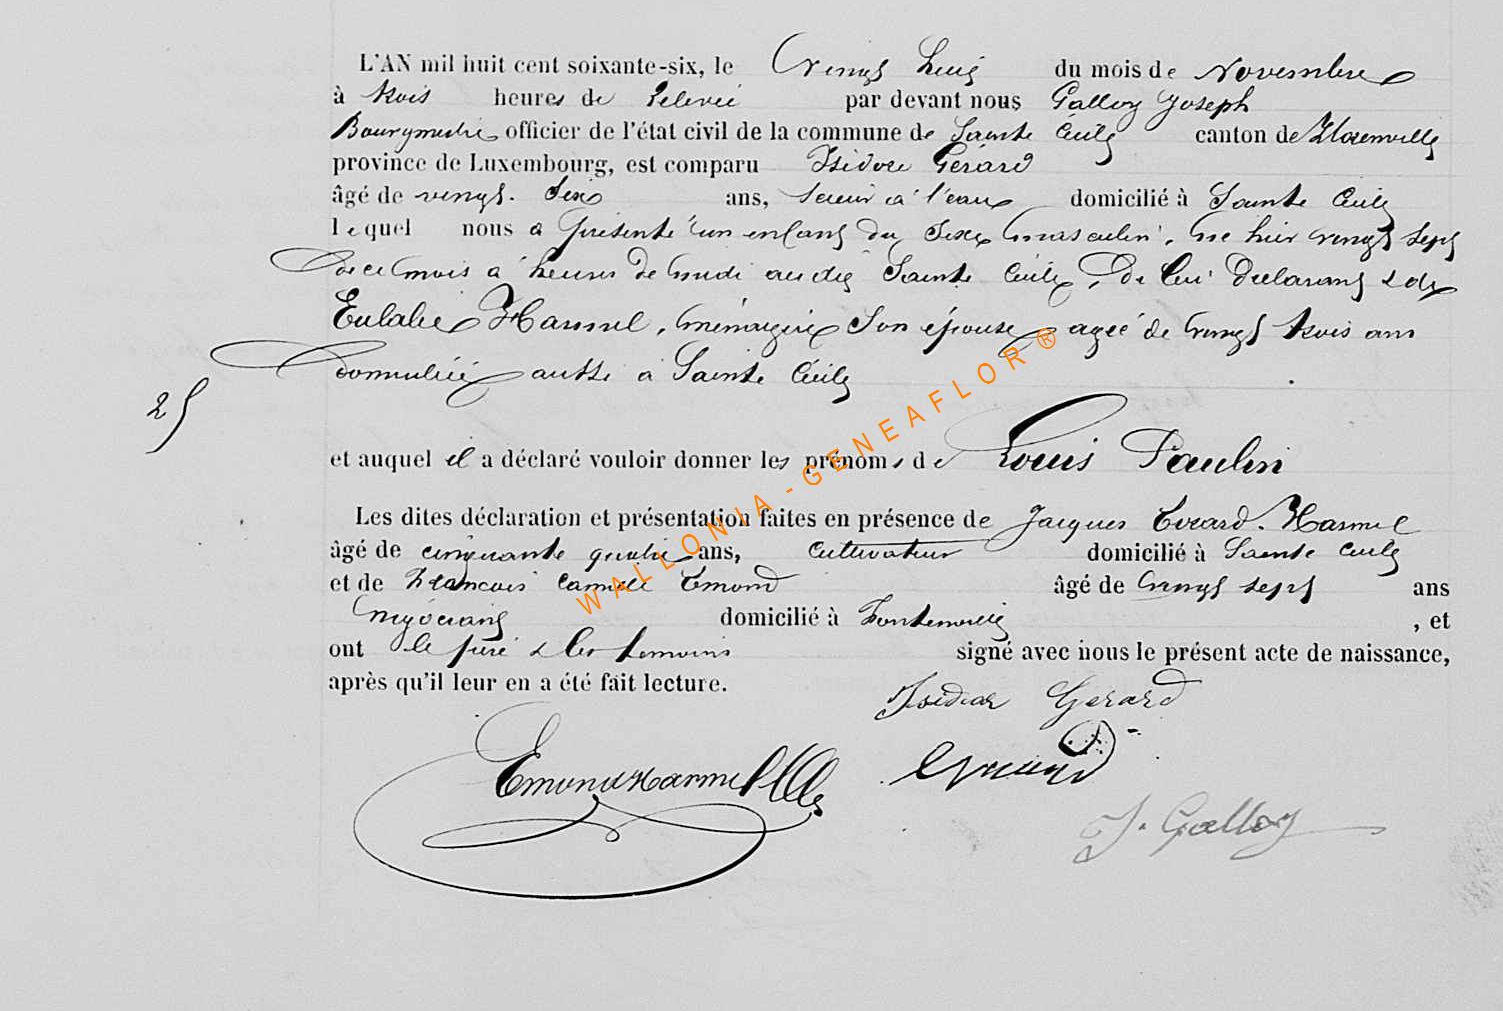 L'AN mil huit cent soixante-six, le vingt huit du mois de Novembre
à trois heures de relevée par devant nous Galloy Joseph
Bourgmestre officier de l'état civil de la commune de Sainte Cécile canton de Florenville
province de Luxembourg, est comparu Isidore Gérard
âgé de vingt-six ans, scieur à l'eau domicilié à Sainte Cécile
lequel nous a présenté un enfant du sexe masculin, né hier vingt sept
de ce mois à heures de midi au dit Sainte Cécile, de lui déclarant & de
Eulalie Harmel, ménagère son épouse agée de vingt trois ans
domiciliée aussi à Sainte Cécile
25
et auquel il a déclaré vouloir donner les prénoms de Louis Paulin
Les dites déclaration et présentation faites en présence de Jacques Evrard-Harmel
âgé de cinquante quatre ans, cultivateur domicilié à Sainte Cécile
et de François Camille Emond âgé de vingt sept ans
négociant domicilié à Fontenoille, et
ont le père & les témoins signé avec nous le présent acte de naissance,
après qu'il leur en a été fait lecture.
Isidore Gérard
Emond Harmel Evrard
J. Galloy
WALLONIA-GENEAFLOR®